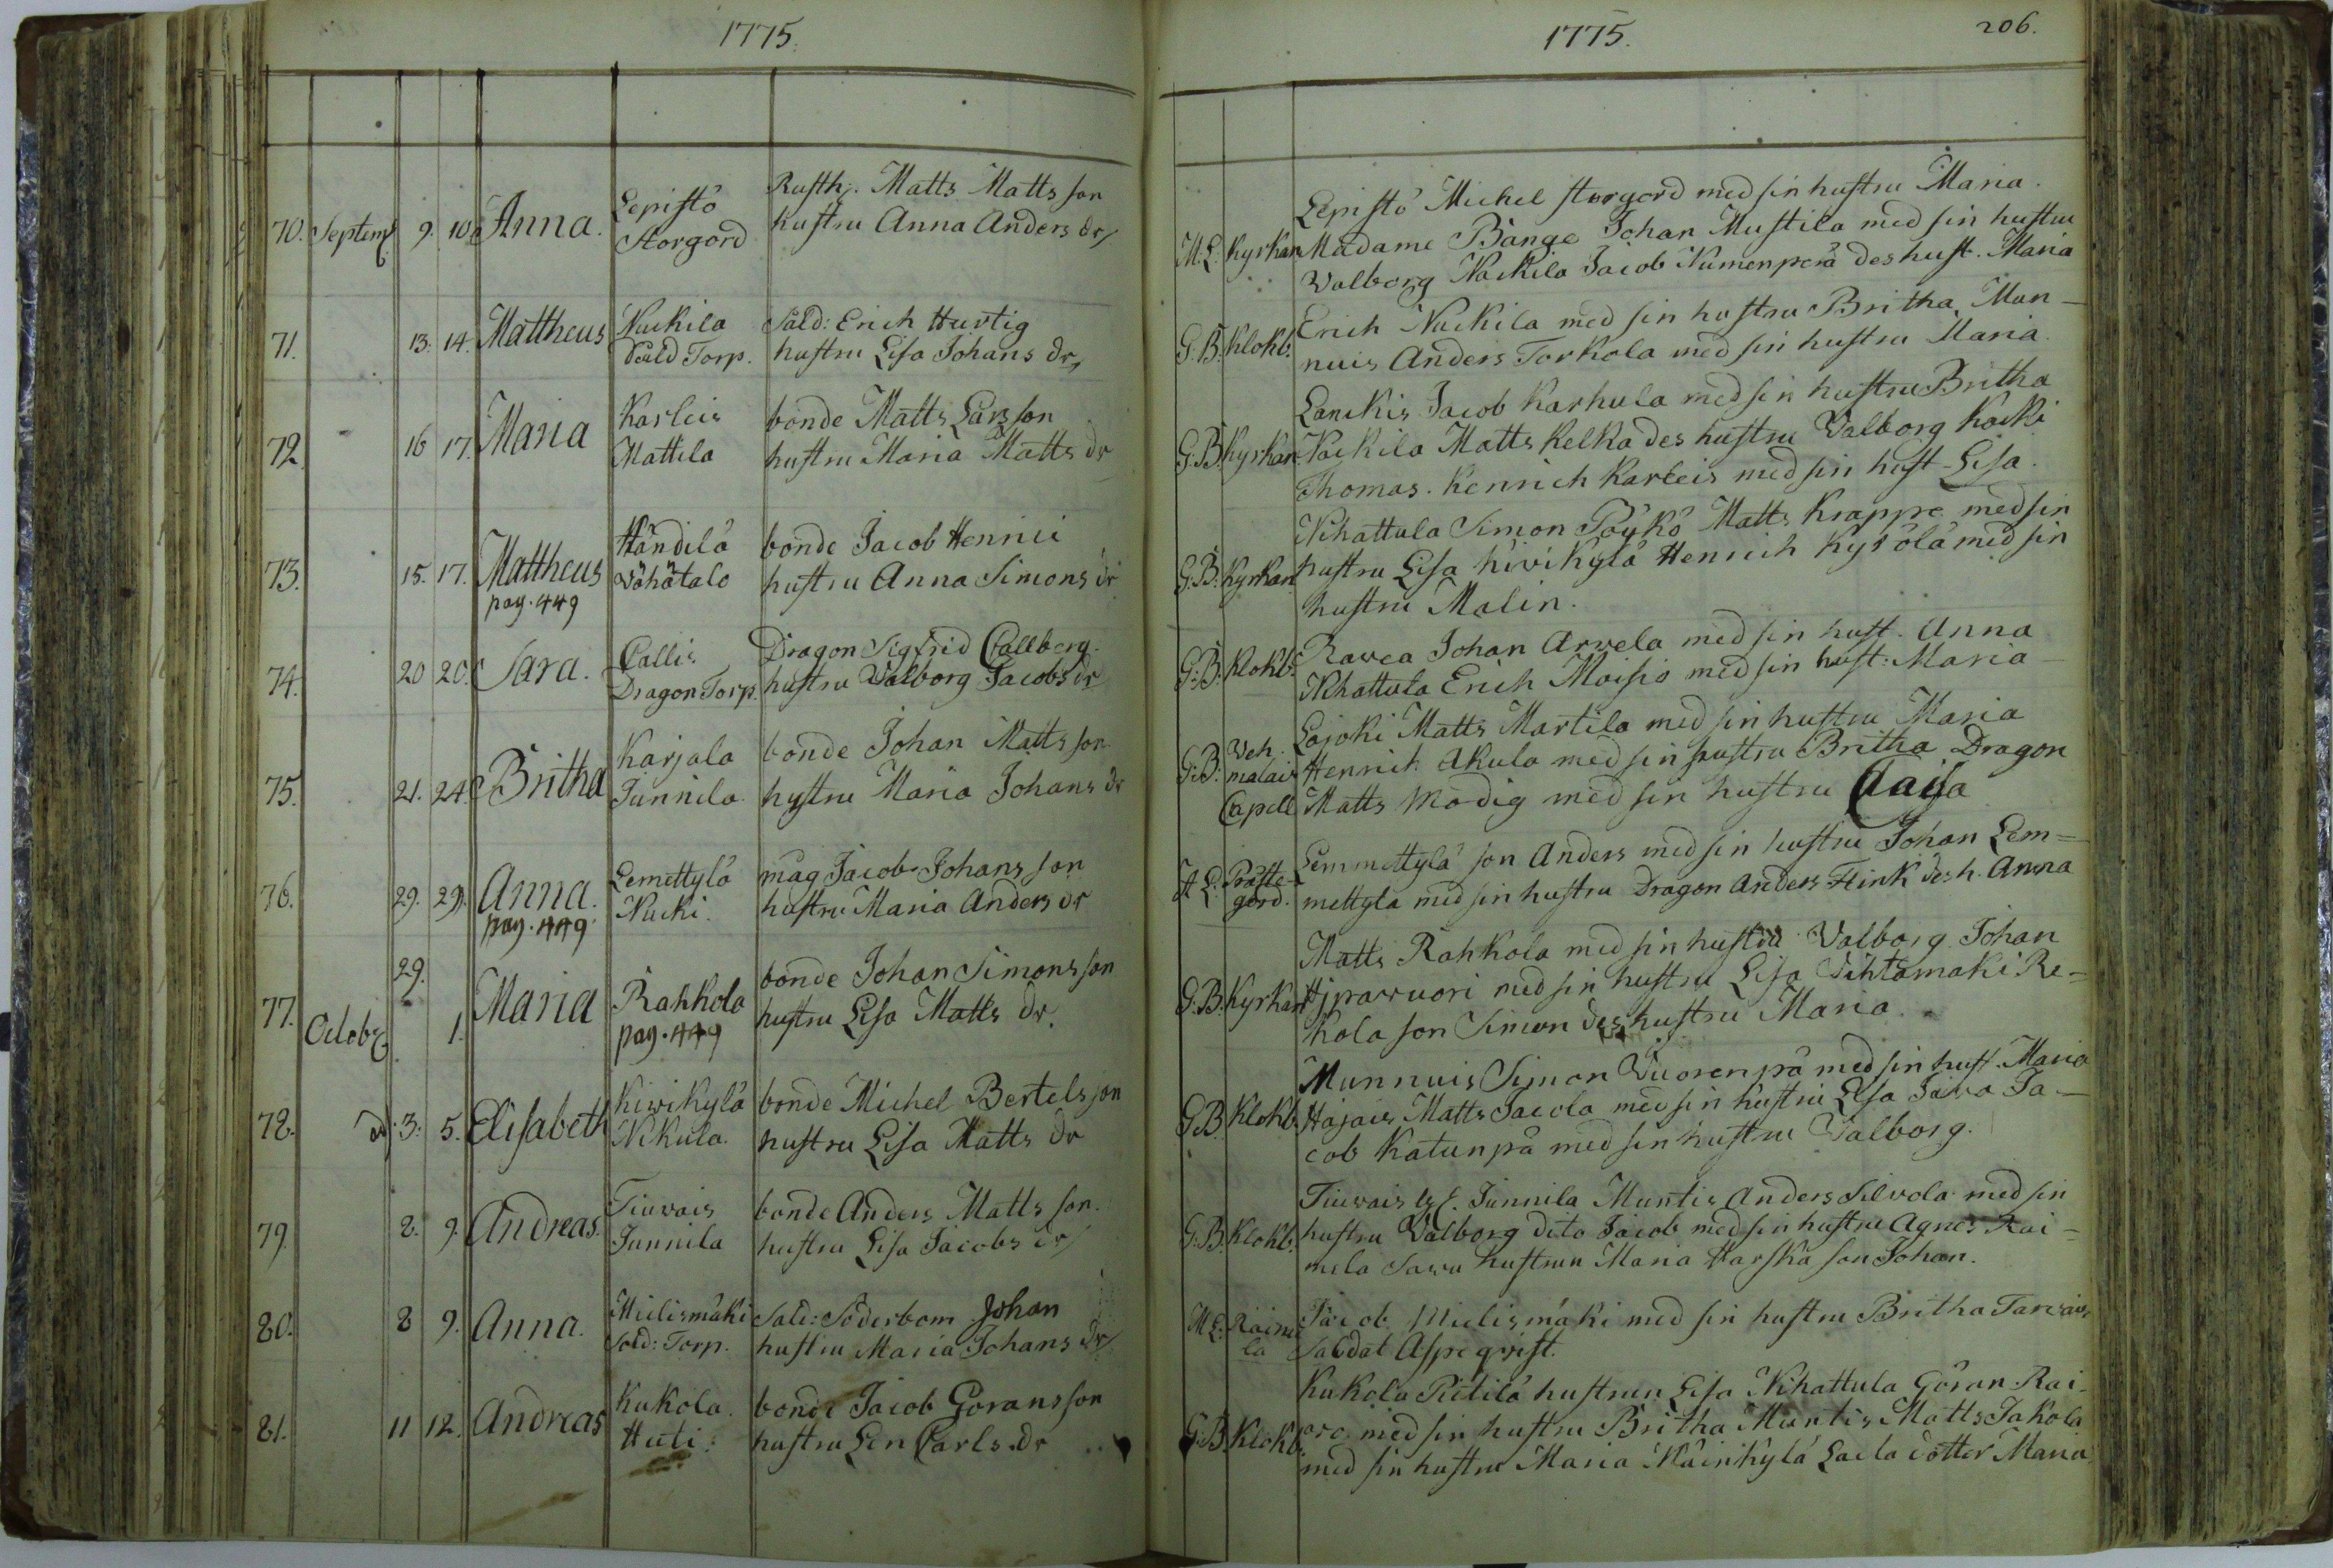 1775.
70. Septemb 9. 10. Anna. Lepistö Rusth: Matts Matts son
Storgord hustru Anna Anders dr
71. 13. 14. Mattheus Nuckila Sald: Erich Hurtig
Sald Torp. hustru Lisa Johans dr
72. 16 17. Maria Karleis bonde Matts Larsson
Mattila hustru Maria Matts dr
73. 15. 17. Mattheus Händilä bonde Jacob Henrici
pag. 449 Vähätalo hustru Anna Simons dr
74. 20 20. Sara. Callis Dragon Sigfrid Callberg.
Dragon Torp. hustru Valborg Jacobs dr
75. 21. 24. Britha Karjala bonde Johan Matts son
Junnila. hustru Maria Johans dr
76. 29. 29. Anna. Lemettylä mag Jacob Johans son
pag. 449. Nucki. hustru Maria Anders dr
77. Octobr 29. 1. Maria Rahkola bonde Johan Simons son
pag. 449 hustru Lisa Matts dr.
78. d. 3. 5. Elisabeth Kiwikylä bonde Michel Bertels son
Nikula. hustru Lisa Matts dr
79. 8. 9. Andreas. Tiuvais bonde Anders Matts son.
Junnila hustru Lisa Jacobs dr
80. 8 9. Anna. Mielismäki Sald: Söderbom Johan
Sold: Torp. hustru Maria Johans dr
81. 11 12. Andreas Kukola. bonde Jacob Göransson
Huti. hustru Len Carls dr
1775.
206.
Lepistö Michel storgord med sin hustru Maria.
M.L. Kyrkan Madame Bånge Johan Mustila med sin hustru
Valborg Nackila Jacob Numenperä des hust. Maria
G.B. Klokb. Erich Nuckila med sin hustru Britha Mun-
nuis Anders Torkola med sin hustru Maria.
Lanckis Jacob Karhula med sin hustru Britha
G.B. Kyrkan. Nackila Matts Kelka des hustru Valborg Kacki
Thomas. Henrich Karleis med sin hust. Lisa.
Nihattula Simon Päykö Matts Krappe med sin
G.B. Kyrkan hustru Lisa Kivikylä Henrich Kyrölä med sin
hustru Malin.
G.B. Klokb. Ravea Johan Arvela med sin hust. Anna
Nihattula Erich Moisio med sin hust: Maria-
Lajoki Matts Martila med sin hustru Maria
G.B. Veh malais Henrich Akula med sin hustru Britha Dragon
Capell Matts Modig med sin hustru Caisa
A L. Präste- Lemmettylä son Anders med sin hustru Johan Lem-
gård. mettyla med sin hustru Dragon Anders Flink des h. Anna
Matts Rahkola med sin hustru Valborg. Johan
G.B. Kyrkan Hjpavuori med sin hustru Lisa Vihtamaki Re-
kola son Simon des hustru Maria.
Munnuis Simon Vuorenpä med sin hust. Maria
G.B. Klokb. Hajais Matts Jacola med sin hustru Lisa Sawa Ja-
cob Katunpä med sin hustru Valborg.
Tiuvais Junnila Muntis Anders Silvola med sin
G.B. Klokb. hustru Valborg dito Jacob med sin hustru Agnes Rai-
mela Sawu hustrun Maria Harska son Johan.
M L. Raime Jacob Mielismäki med sin hustru Britha Tarvais
la Saldat Aspeqvist.
Kukola Pietilä hustrun Lisa Nihattula Göran Rai-
G.B. Klokb. vo. med sin hustru Britha Muntis Matts Jakola
med sin hustru Maria Mäinikylä Laila dotter Maria